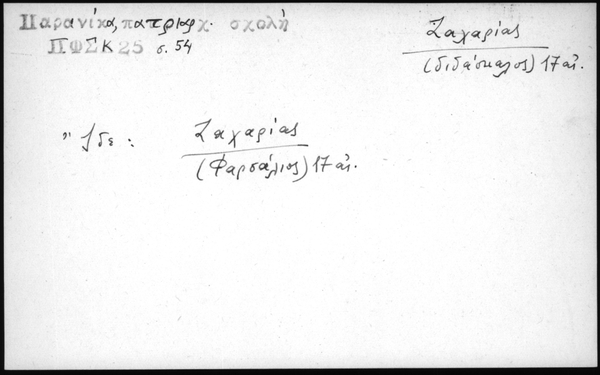 Παρανίκα, πατριαρχ. σχολή
ΠΦΣΚ 25 σ. 54
Ζαχαρίας
(διδάσκαλος) 17 αἰ.
" Ἴδε :
Ζαχαρίας
(Φαρσάλιος) 17 αἰ.